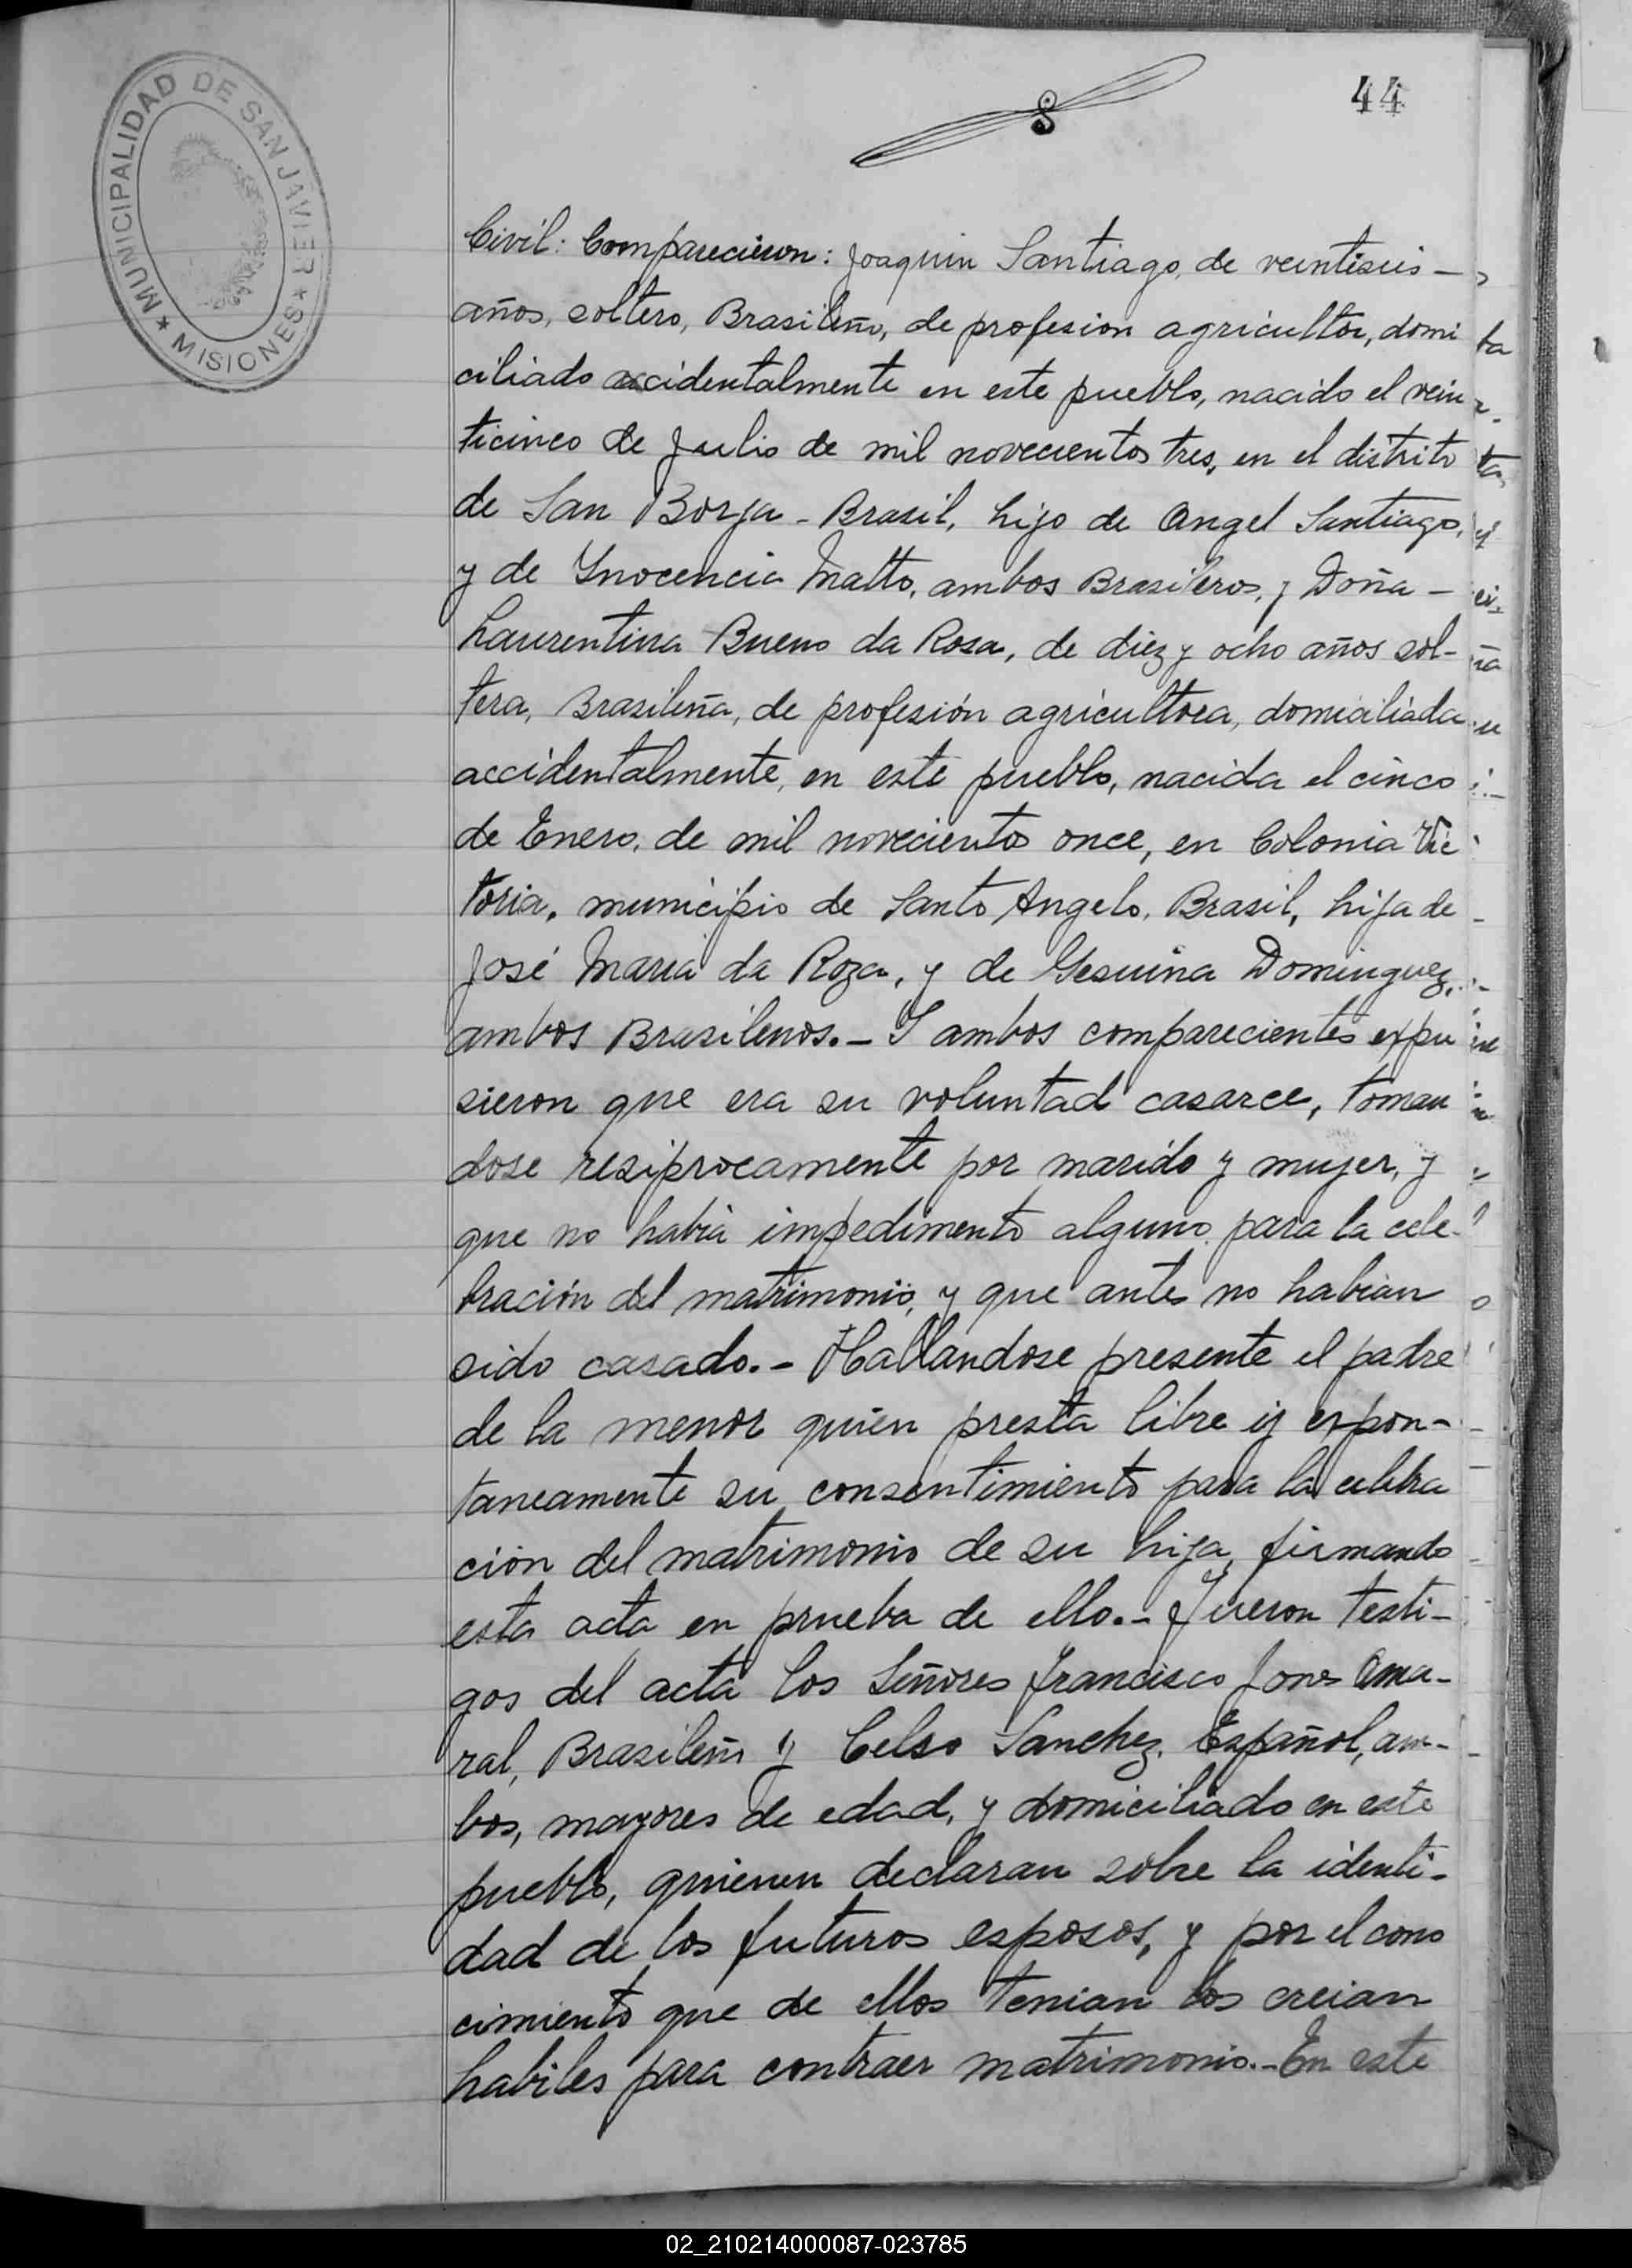 44
MUNICIPALIDAD DE SAN JAVIER
★ MISIONES ★
Civil: Comparecieron: Joaquin Santiago, de veintiseis —
años, soltero, Brasileño, de profesion agricultor, domi
ciliado accidentalmente en este pueblo, nacido el vein
ticinco de Julio de mil novecientos tres, en el distrito
de San Borja - Brasil, hijo de Angel Santiago,
y de Ynocencia Matto, ambos Brasileros, y Doña —
Laurentina Bueno da Rosa, de diez y ocho años sol-
tera, Brasileña, de profesión agricultora, domiciliada
accidentalmente, en este pueblo, nacida el cinco
de Enero, de mil noveciento once, en Colonia Vic
toria, municipio de Santo Angelo, Brasil, hija de
José Maria da Roza, y de Gesuina Dominguez,
ambos Brasilenos.- I ambos comparecientes expu
sieron que era su voluntad casarce, toman
dose resiprocamente por marido y mujer, y
que no habia impedimento alguno para la cele-
bración del matrimonio, y que antes no habian
sido casado.- Hallandose presente el padre
de la menor quien presta libre y expon-
taneamente su consentimiento para la celebra
ción del matrimonio de su hija, firmando
esta acta en prueba de ello.- Fueron testi-
gos del acta los Señores Francisco Jones Ama-
ral, Brasileño y Celso Sanchez, Español, am-
bos, mayores de edad, y domiciliado en este
pueblo, quienen declaran sobre la identi-
dad de los futuros esposos, y por el cono
cimiento que de ellos tenian los creian
habiles para contraer matrimonio.- En este
02_210214000087-023785